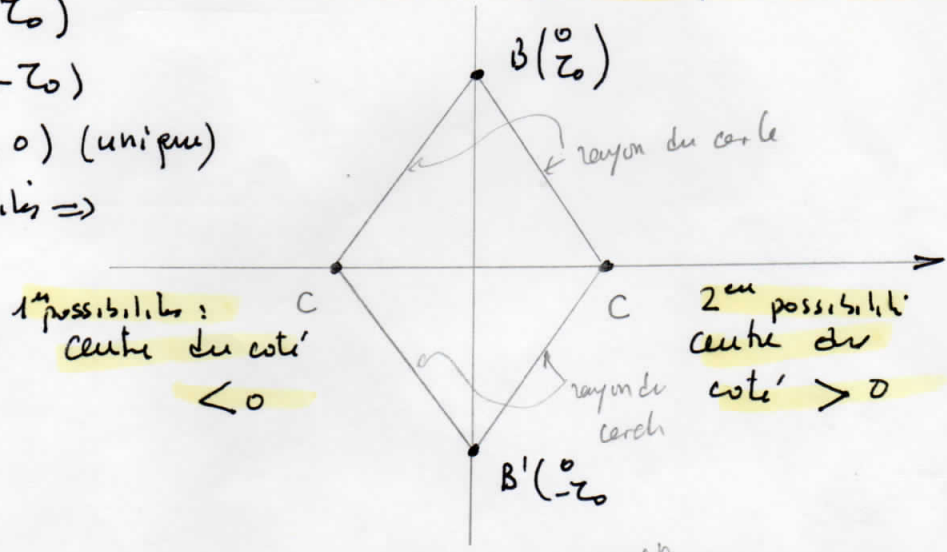 τ₀)
B(0 τ₀)
-τ₀)
0) (unique)
rayon du cercle
=>
1ère possibilités :
C
centre du coté
< 0
C
2ème possibilité
centre du
coté > 0
rayon du
cercle
B'(0 -τ₀